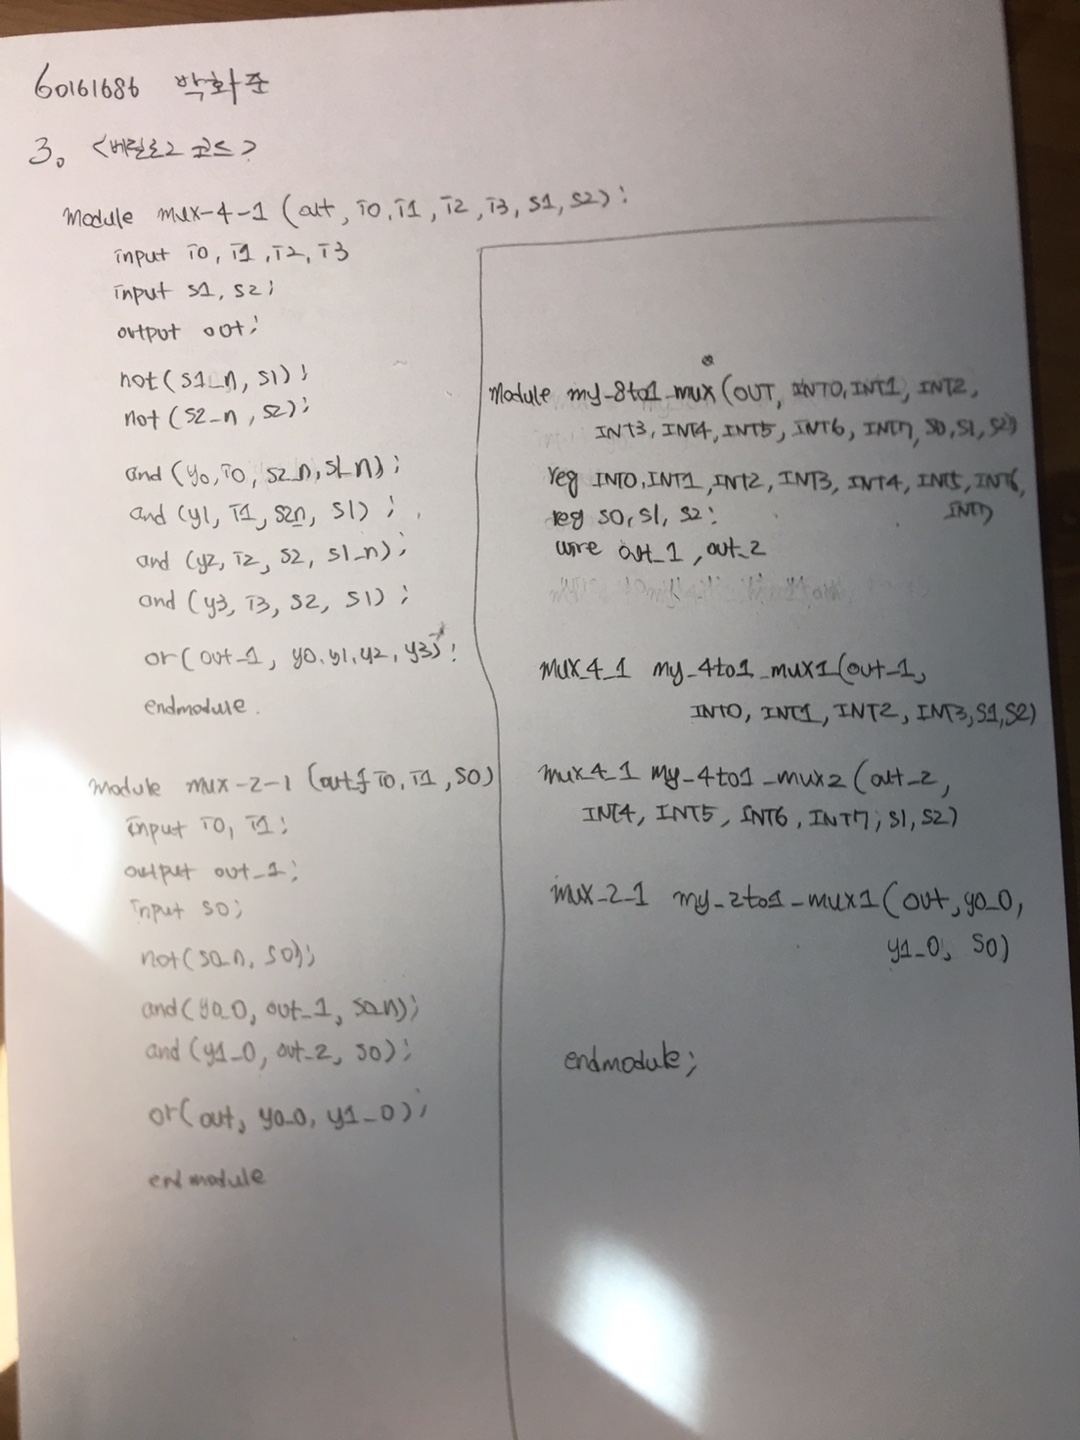 60161686 박화준
3. <베릴로그 코드>
Module mux-4-1 (out, i0, i1, i2, i3, s1, s2);
input i0, i1, i2, i3
input s1, s2;
output out;
not(s1_n, s1);
not(s2_n, s2);
and(y0, i0, s2_n, s1_n);
and(y1, i1, s2n, s1);
and(y2, i2, s2, s1_n);
and(y3, i3, s2, s1);
or(out_1, y0, y1, y2, y3);
endmodule.
Module mux-2-1 (out, i0, i1, s0)
input i0, i1;
output out_1;
input s0;
not(s0_n, s0);
and(y0_0, out_1, s0_n);
and(y1_0, out_2, s0);
or(out, y0_0, y1_0);
endmodule
Module my_8to1_mux(OUT, INT0, INT1, INT2,
INT3, INT4, INT5, INT6, INT7, S0, S1, S2)
reg INT0, INT1, INT2, INT3, INT4, INT5, INT6,
INT7
reg S0, S1, S2;
wire out_1, out_2
mux_4_1 my_4to1_mux1(out_1,
INT0, INT1, INT2, INT3, S1, S2)
mux4_1 my_4to1_mux2(out_2,
INT4, INT5, INT6, INT7, S1, S2)
mux_2_1 my_2to1_mux1(out, y0_0,
y1_0, S0)
endmodule;